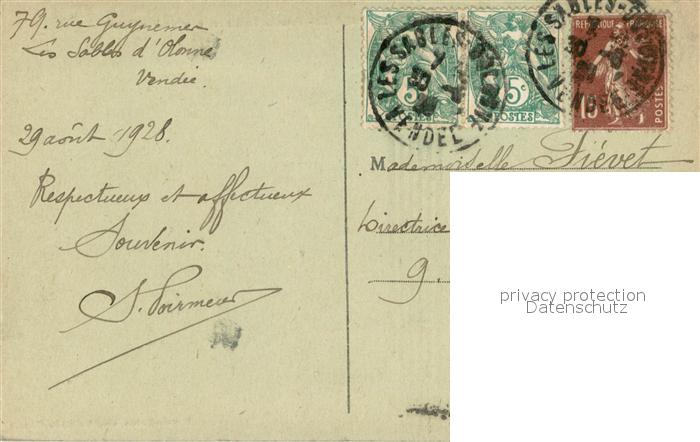 79. rue Guynemer
Les Sables d'Olonne
Vendée.
29 août 1928.
Respectueux et affectueux
Souvenir.
LES SABLES-D'OLONNE
VENDEE
5c
5c
POSTES
POSTES
LES SABLES-D'OLONNE
VENDEE
REPUBLIQUE FRANÇAISE
15
POSTES
Mademoiselle Fiévet
Directrice
9.
privacy protection
Datenschutz